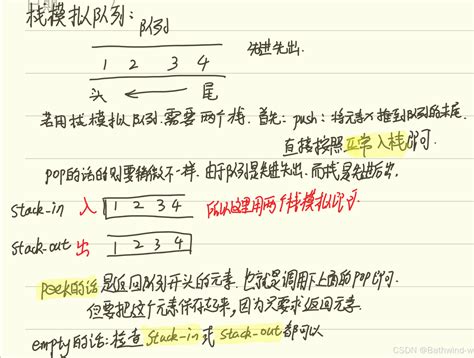 栈模拟队列:
队列
1 2 3 4
先进先出.
头 尾
若用栈模拟队列.需要两个栈.首先:push:将元素x推到队列的末尾.
直接按照正常入栈即可.
pop的话则要稍微不一样.由于队列是先进先出.而栈是先进后出.
stack_in 入 1 2 3 4 所以这里用两个栈模拟即可.
stack_out 出 1 2 3 4
peek的话是返回队列开头的元素.也就是调用下上面的pop即可.
但要把这个元素保存起来,因为只要求返回元素.
empty的话:检查stack_in或stack_out都可以
CSDN @Bathwind-w